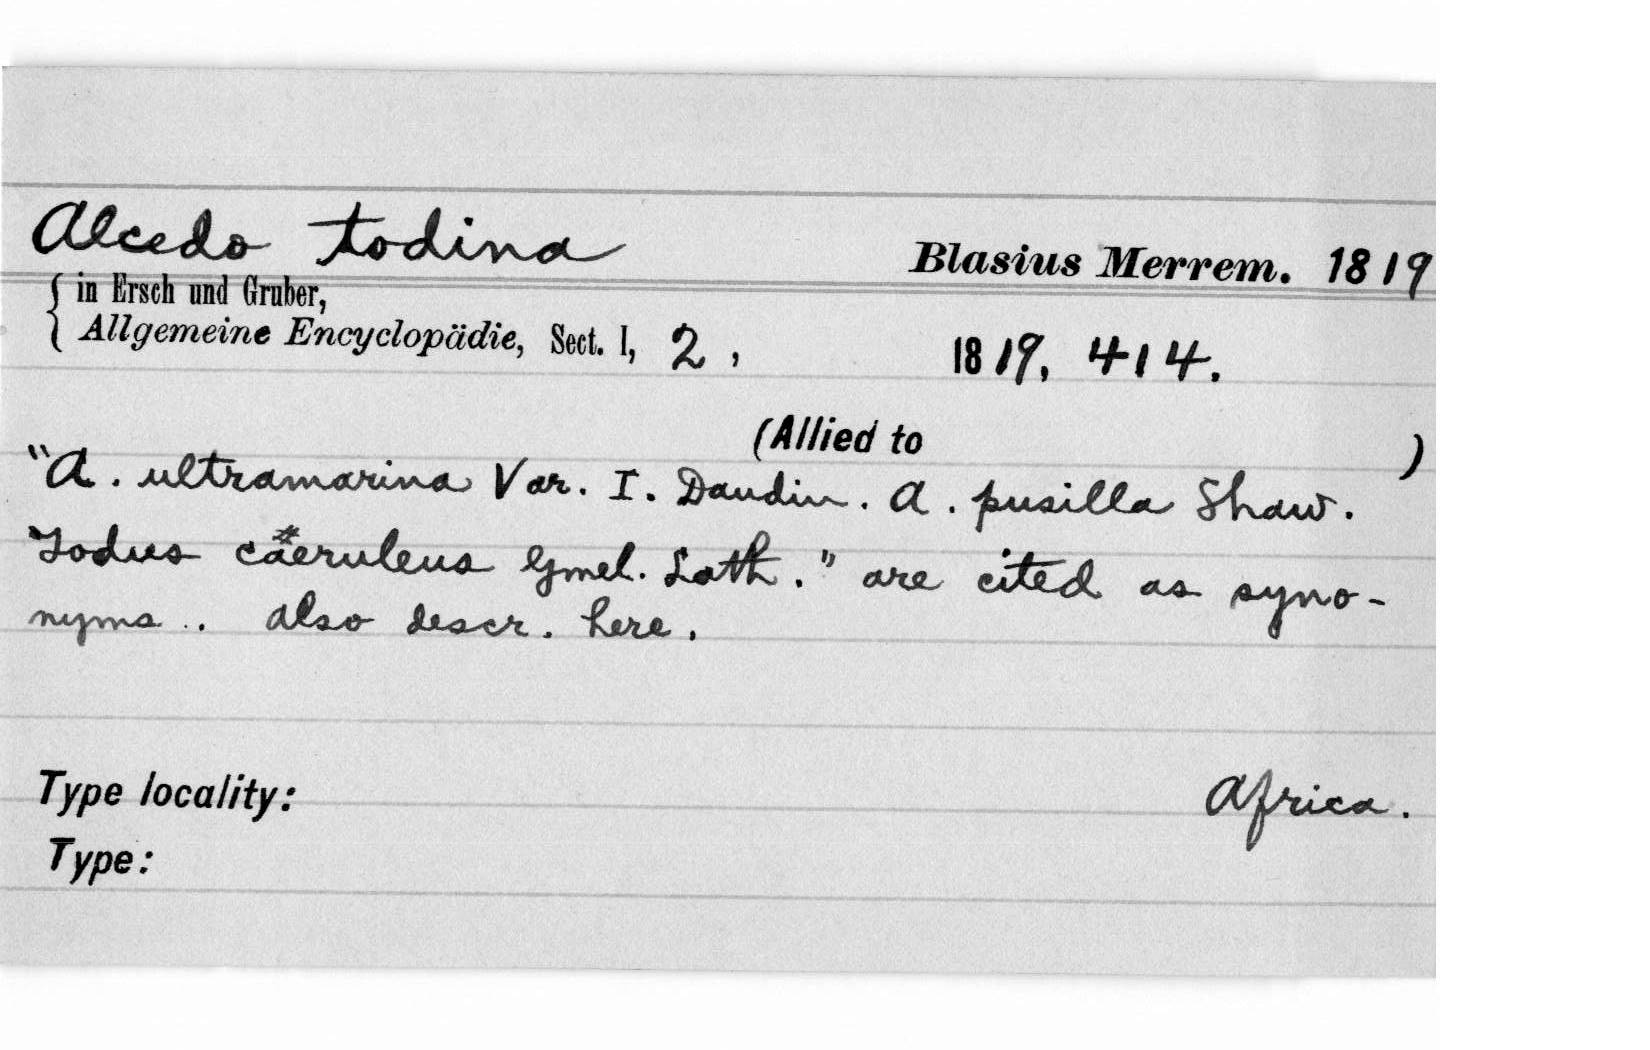 Alcedo todina Blasius Merrem. 1819
in Ersch und Gruber,
Allgemeine Encyclopädie, Sect. I, 2, 1819, 414.
(Allied to )
"A. ultramarina Var. I. Daudin. A. pusilla Shaw.
Todus caeruleus Gmel. Lath." are cited as syno-
nyms.. Also descr. here.
Type locality: Africa.
Type: